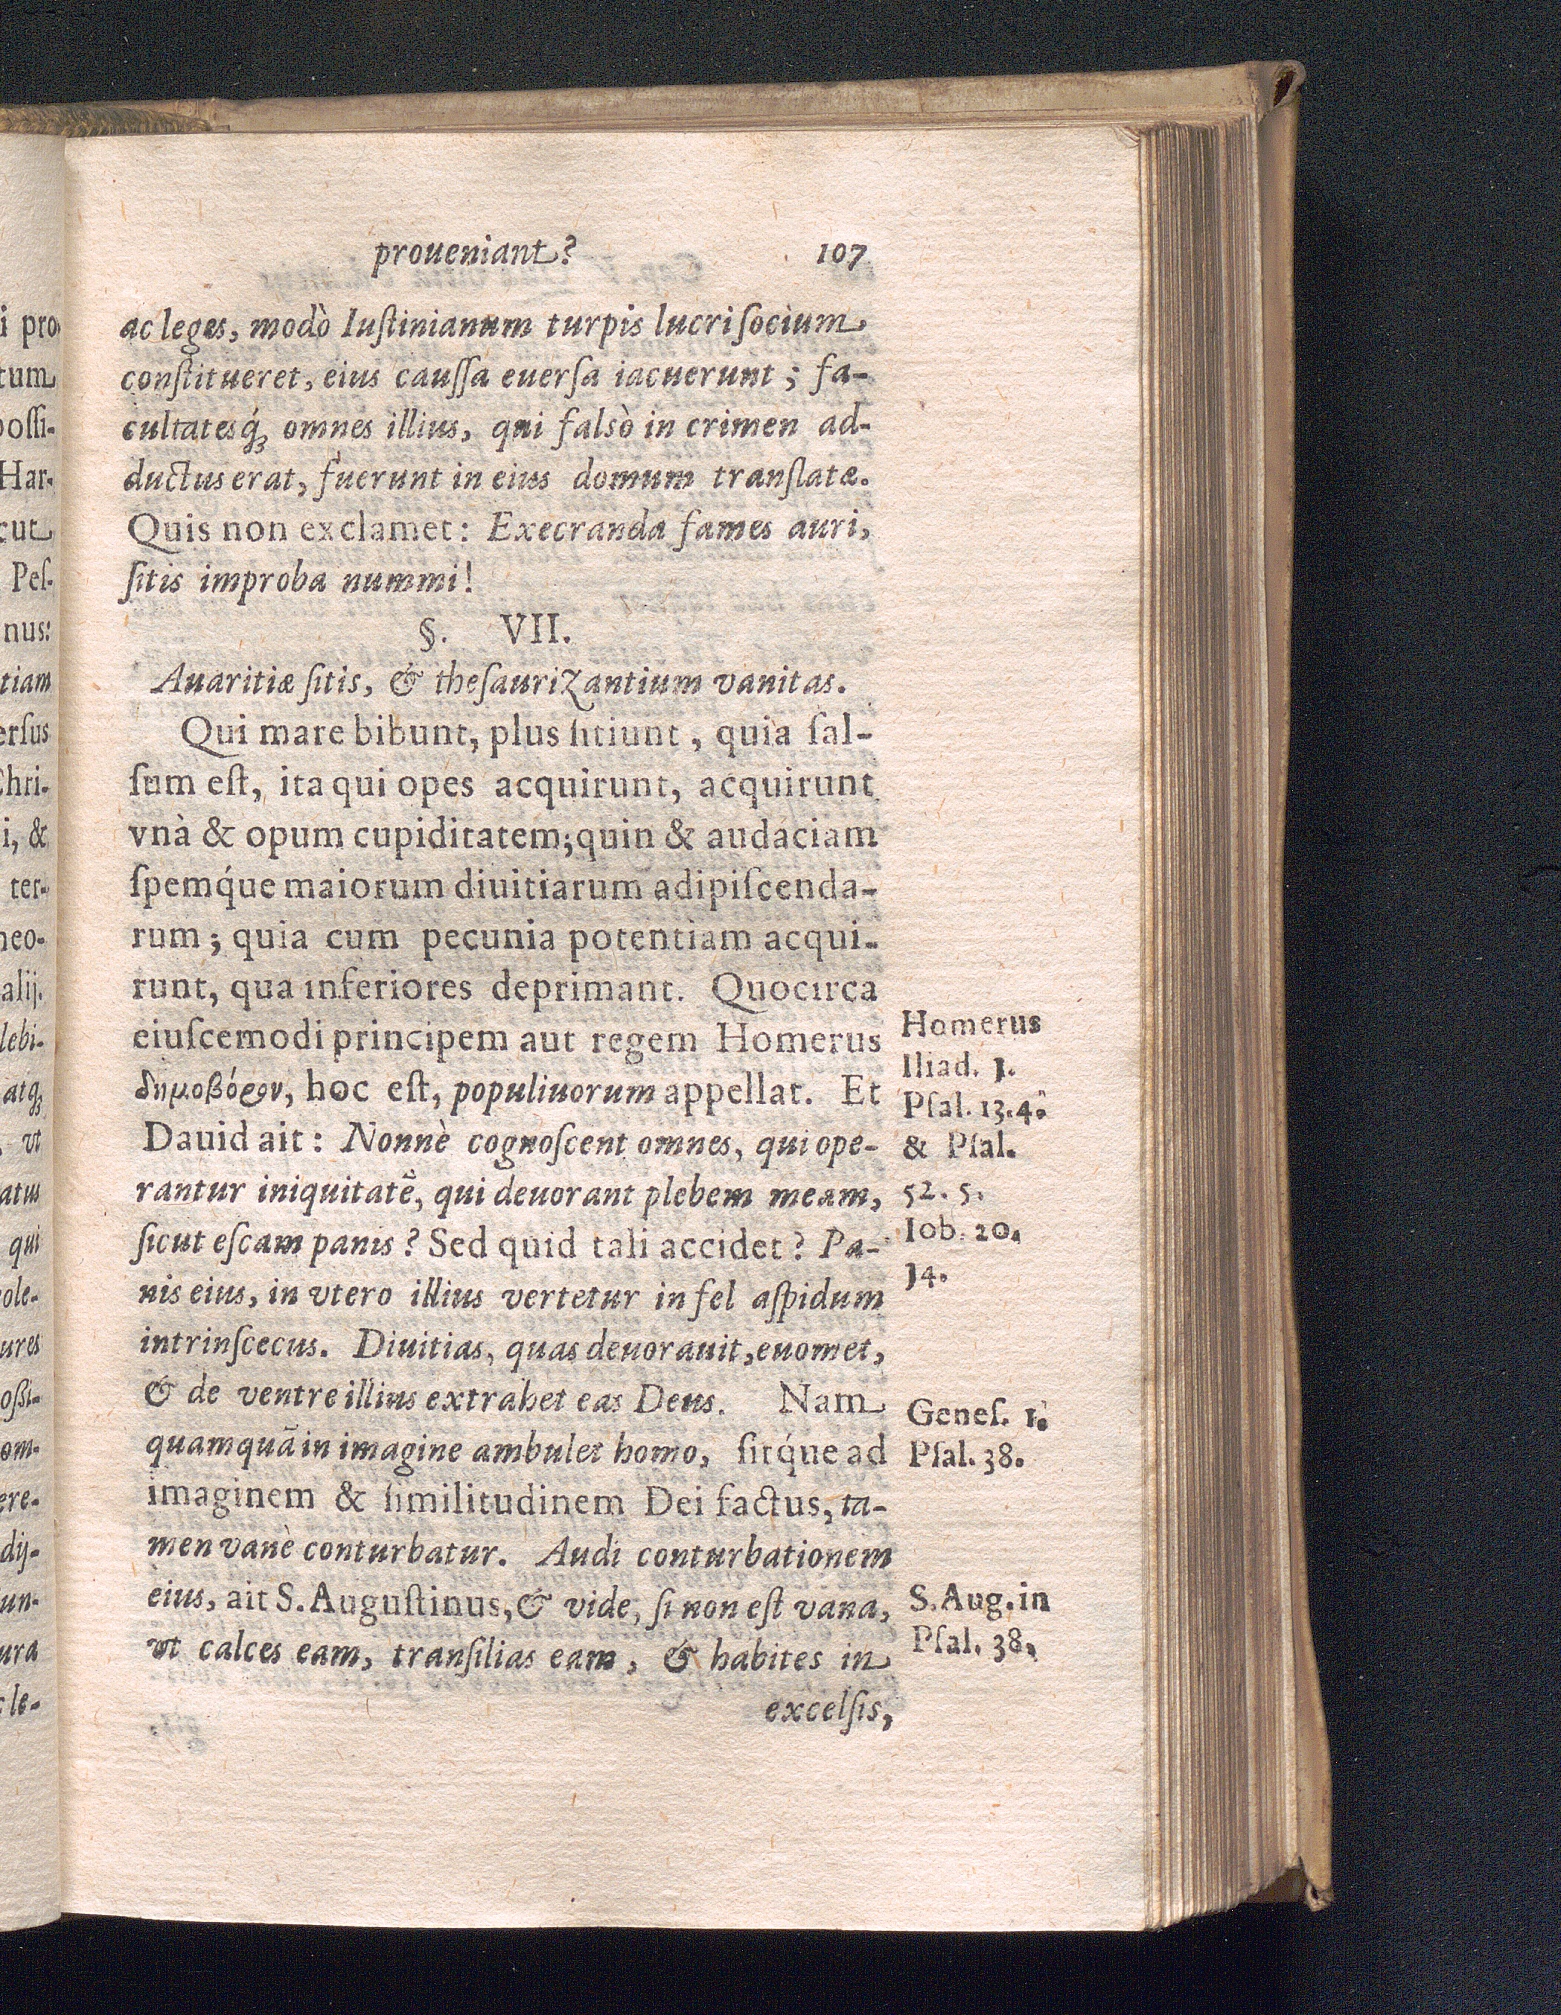 proueniant? 107
ac leges, modò Iuſtinianum turpis lucri ſocium
conſtitueret, eius cauſſa euerſa iacuerunt; fa-
cultatesq́ꝫ omnes illius, qui falsò in crimen ad-
ductus erat, fuerunt in eius domum tranſlatæ.
Quis non exclamet: Execranda fames auri,
ſitis improba nummi!
§. VII.
Auaritiæ ſitis, & theſaurizantium vanitas.
Qui mare bibunt, plus ſitiunt, quia ſal-
ſum eſt, ita qui opes acquirunt, acquirunt
vnà & opum cupiditatem; quin & audaciam
ſpemq́ue maiorum diuitiarum adipiſcenda-
rum; quia cum pecunia potentiam acqui-
runt, qua inferiores deprimant. Quocirca
eiuſcemodi principem aut regem Homerus
δημοβόρον, hoc eſt, populiuorum appellat. Et
Dauid ait: Nonnè cognoſcent omnes, qui ope-
rantur iniquitatē, qui deuorant plebem meam,
ſicut eſcam panis? Sed quid tali accidet? Pa-
nis eius, in vtero illius vertetur in fel aſpidum
intrinſcecus. Diuitias, quas deuorauit, euomet,
& de ventre illius extrahet eas Deus. Nam
quamquā in imagine ambulet homo, ſitq́ue ad
imaginem & ſimilitudinem Dei factus, ta-
men vanè conturbatur. Audi conturbationem
eius, ait S. Auguſtinus, & vide, ſi non eſt vana,
vt calces eam, tranſilias eam, & habites in
excelſis,
Homerus
Iliad. 1.
Pſal. 13. 4.
& Pſal.
52. 5.
Iob. 20.
14.
Geneſ. 1.
Pſal. 38.
S. Aug. in
Pſal. 38.
i pro
tum
poſſi-
Har-
cut
Peſ-
nus:
tiam
erſus
Chri-
i, &
ter-
neo-
alij.
lebi-
atqꝫ
, vt
atus
qui
ole-
ures
oßi-
om-
ere-
dij-
un-
ura
le-